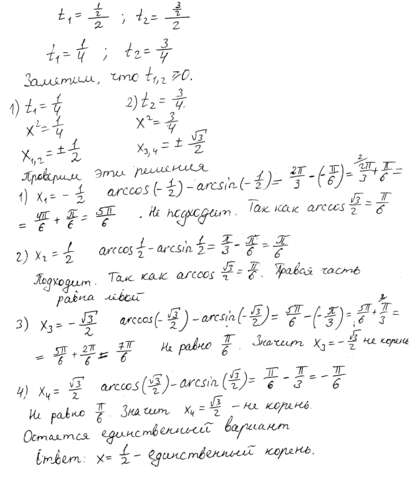 t₁ = (1/2)/2 ; t₂ = (3/2)/2
t₁ = 1/4 ; t₂ = 3/4
Заметим, что t₁,₂ ≥ 0.
1) t₁ = 1/4 2) t₂ = 3/4
x² = 1/4 x² = 3/4
x₁,₂ = ± 1/2 x₃,₄ = ± √3/2
Проверим эти решения
1) x₁ = - 1/2 arccos(- 1/2) - arcsin(- 1/2) = 2π/3 - (- π/6) = 2π/3 + π/6 =
= 4π/6 + π/6 = 5π/6 . Не подходит. Так как arccos √3/2 = π/6
2) x₂ = 1/2 arccos 1/2 - arcsin 1/2 = π/3 - π/6 = π/6
Подходит. Так как arccos √3/2 = π/6. Правая часть
равна левой
3) x₃ = - √3/2 arccos(- √3/2) - arcsin(- √3/2) = 5π/6 - (- π/3) = 5π/6 + π/3 =
= 5π/6 + 2π/6 = 7π/6 Не равно π/6. Значит x₃ = - √3/2 не корень
4) x₄ = √3/2 arccos(√3/2) - arcsin(√3/2) = π/6 - π/3 = - π/6
Не равно π/6. Значит x₄ = √3/2 - не корень.
Остается единственный вариант
Ответ: x = 1/2 - единственный корень.